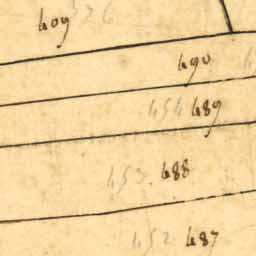 409 326
490
454 489
453 488
452 487